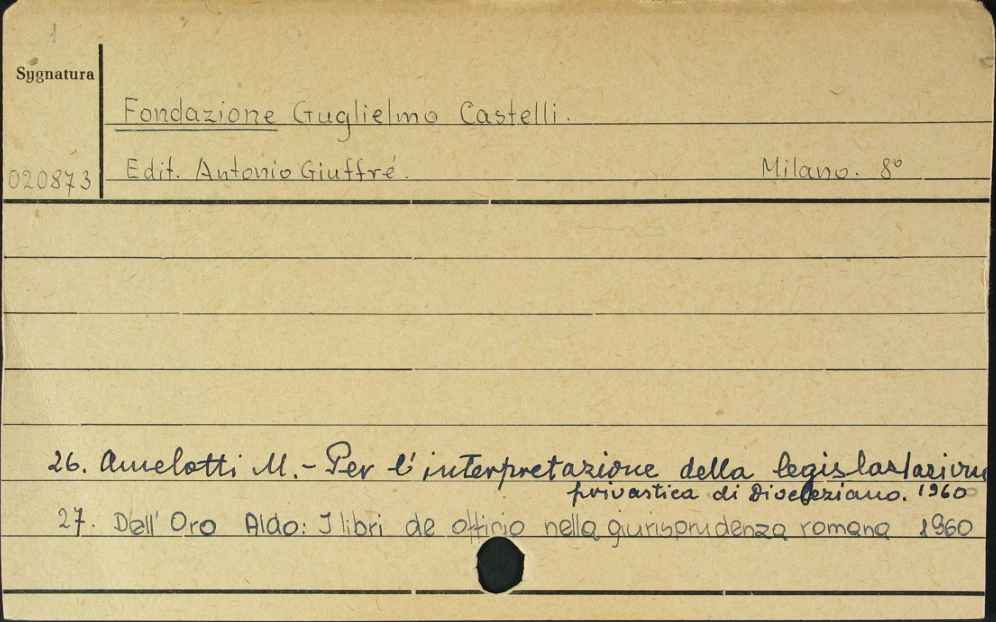 1
Sygnatura
Fondazione Guglielmo Castelli.
020873 Edit. Antonio Giuffré. Milano. 8°
26. Amelotti M. - Per l'interpretazione della
privastica di Diocleziano. 1960
27. Dell' Oro Aldo: I libri de officio nella giurisprudenza romana 1960